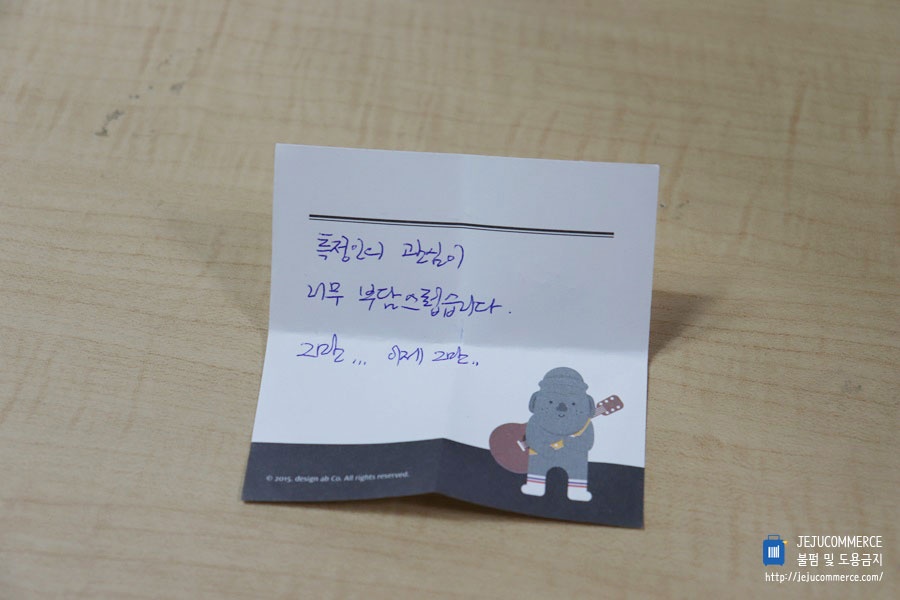 특정인의 관심이
너무 부담스럽습니다.
그만... 이제 그만..
© 2015. design ab Co. All rights reserved.
JEJUCOMMERCE
불펌 및 도용금지
http://jejucommerce.com/